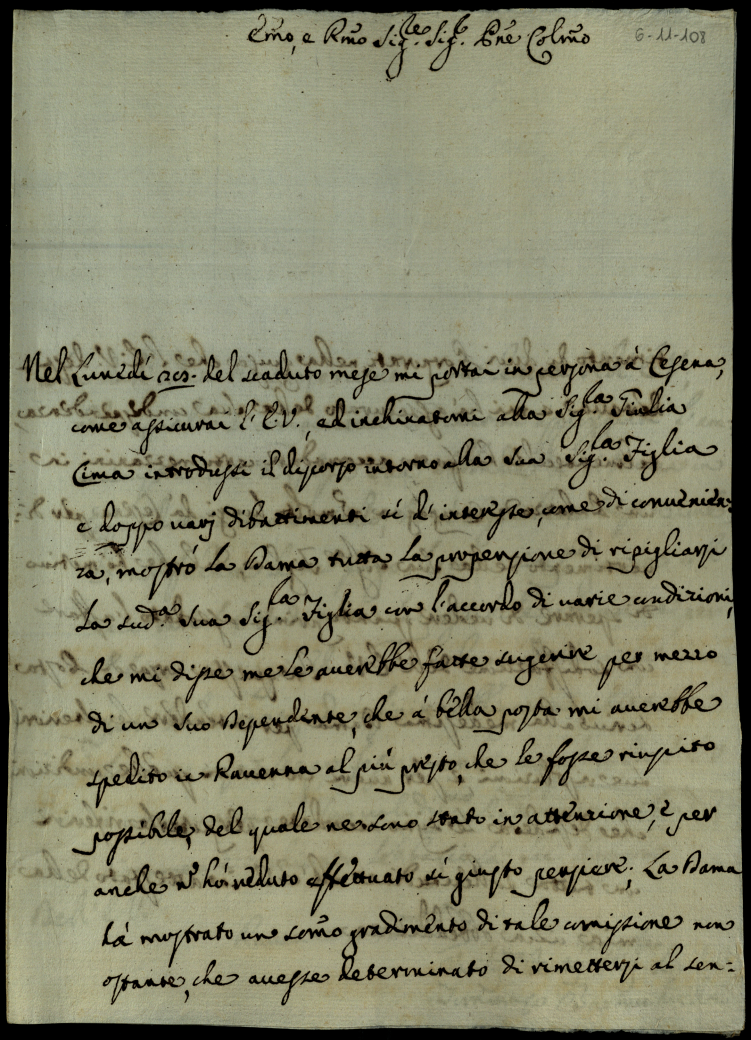 Emo, e Rmo Sig.re Sig.r Pne Colmo
6-11-108
Nel Lunedí del scaduto mese mi portai in persona à Cesena,
come assicurai l'E.V., ed inchinatomi alla Sig.la Giulia
Cima introdussi il discorso intorno alla sua Sig.la Figlia
e doppo varj dibattimenti sí d'interesse, come di convenien=
za, mostró la Dama tutta la propensione di ripigliarsi
la sud.a sua Sig.la Figlia con l'accordo di varie condizioni,
che mi disse me le averebbe fatte sugerire per mezzo
di un suo Dependente, che á bella posta mi averebbe
spedito in Ravenna al piú presto, che le fosse riuscito
possibile, del quale ne sono stato in attenzione, e per
anche nō hó veduto effettuato sí giusto pensiere; La Dama
há mostrato un somō gradimento di tale comissione non
ostante, che avesse determinato di rimettersi al sen=